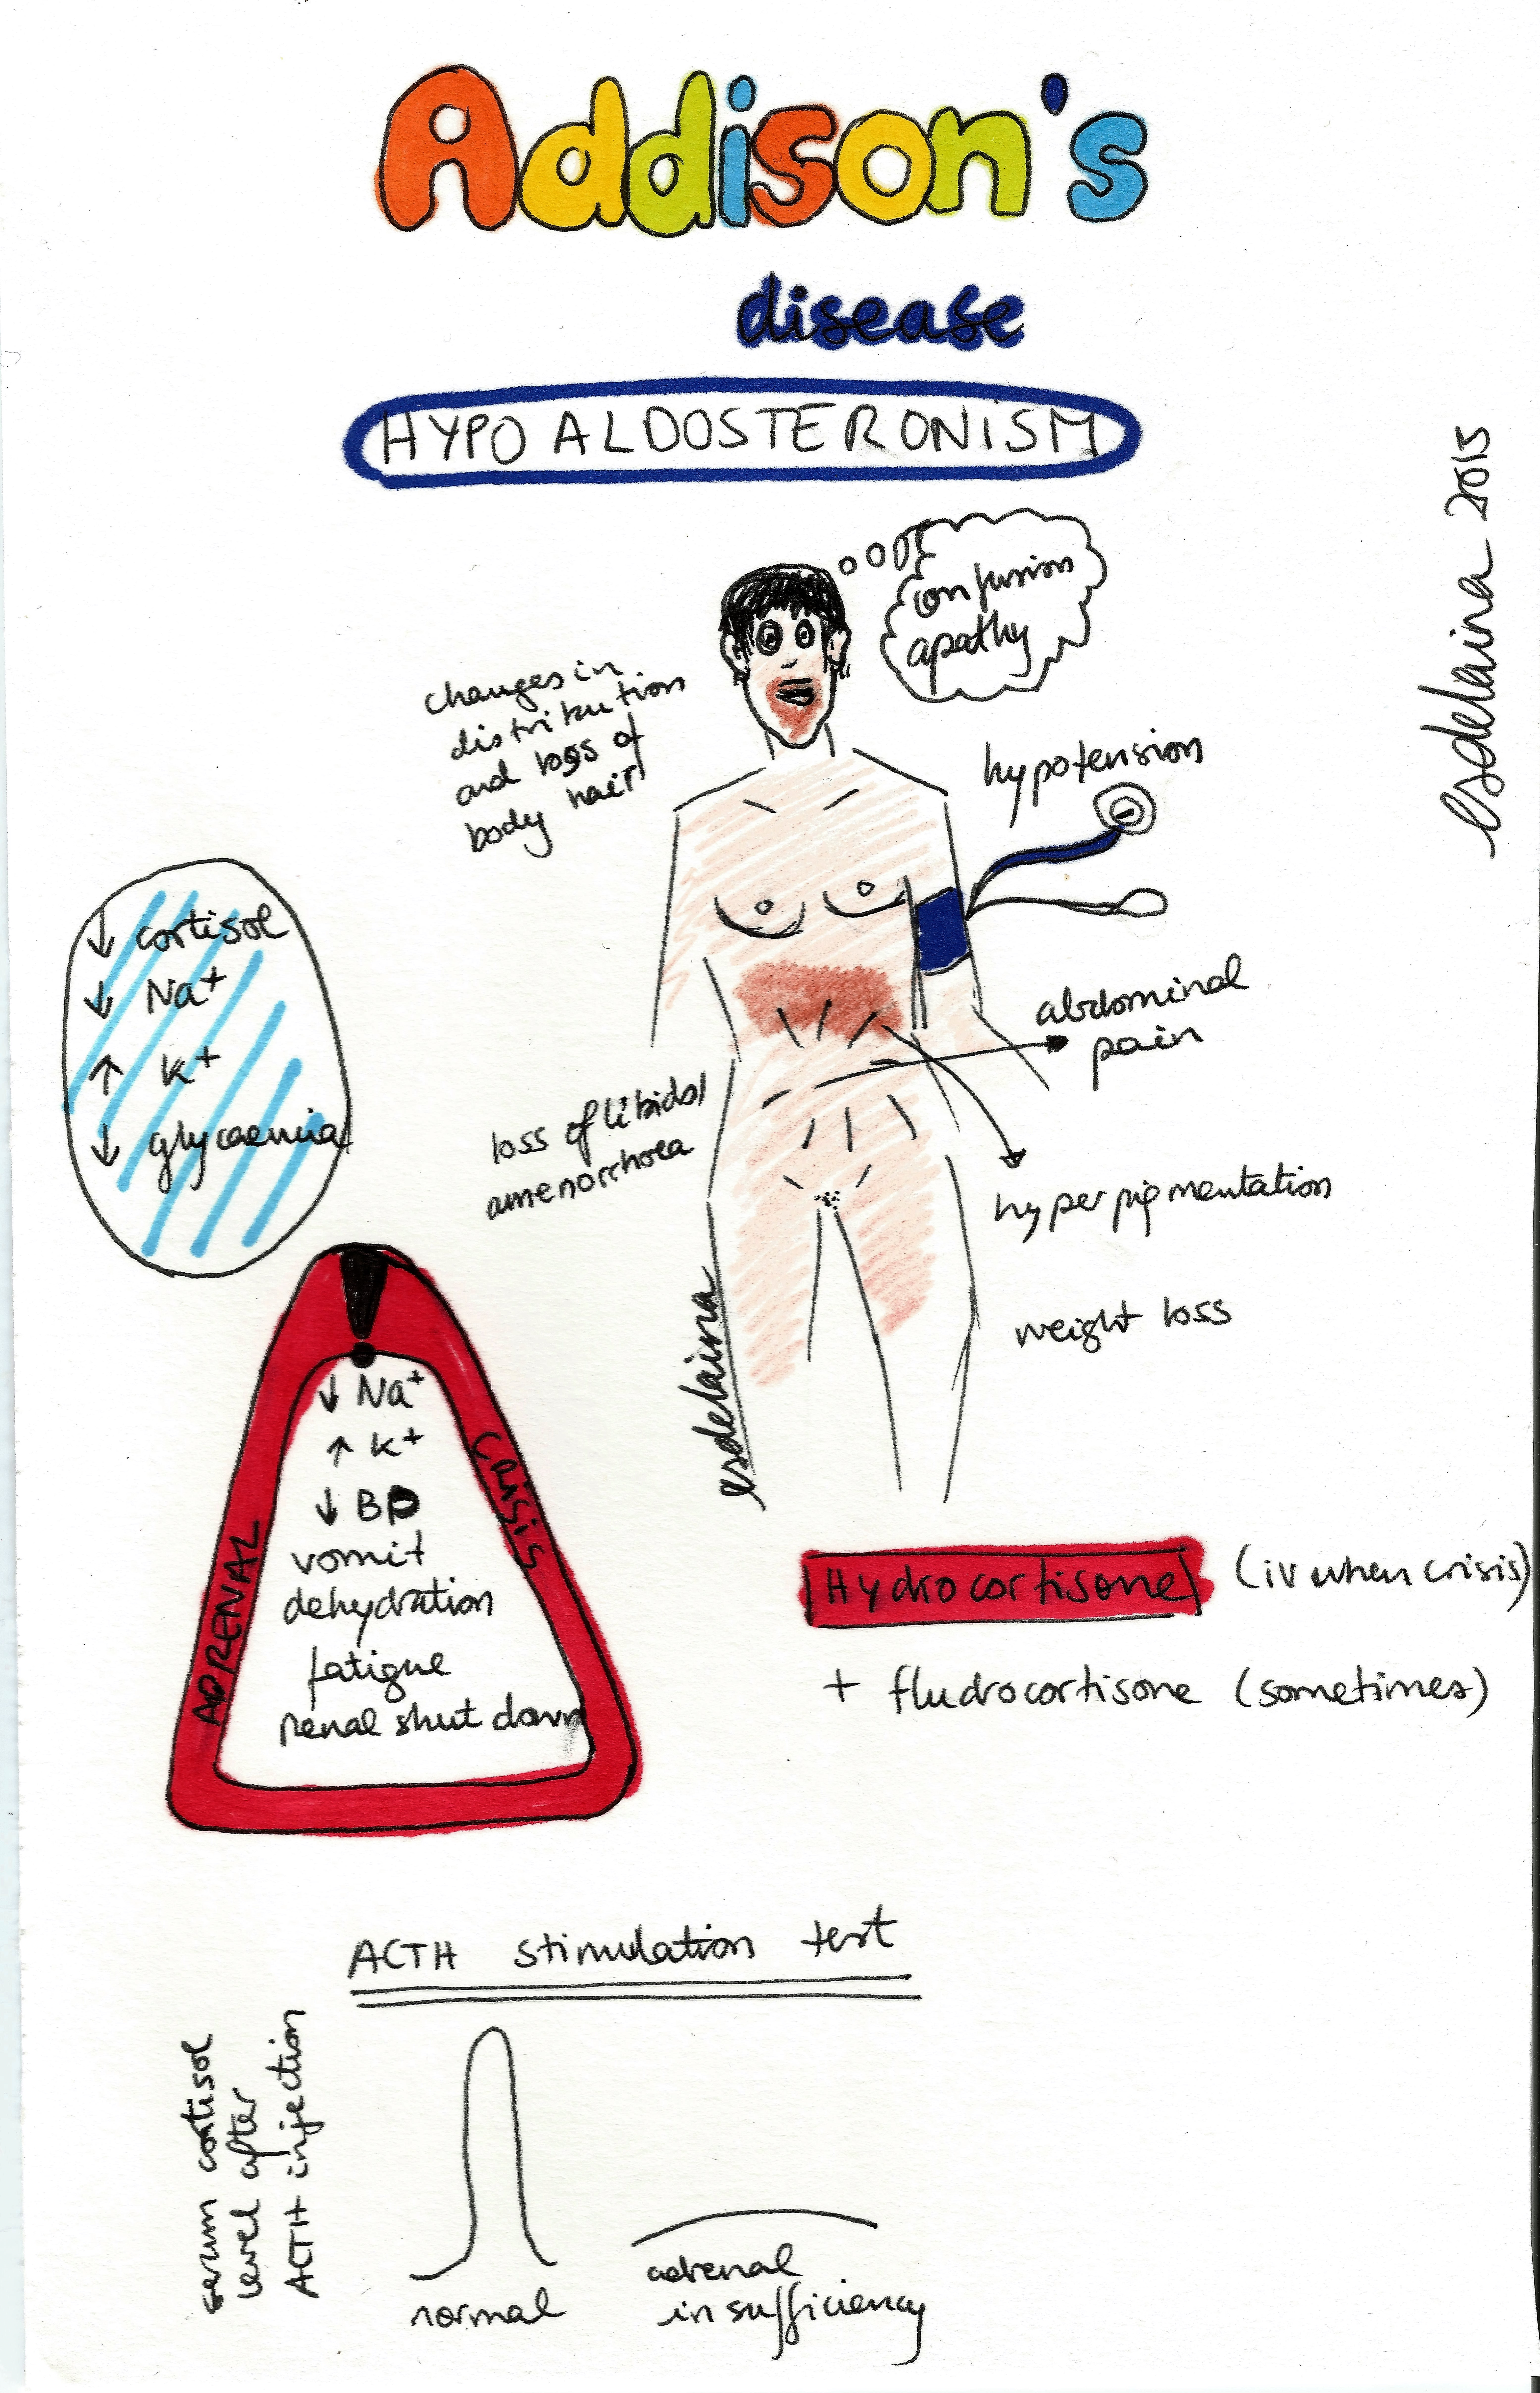 Addison's
disease
HYPOALDOSTERONISM
esdelaina 2015
confusion
apathy
changes in
distribution
and loss of
body hair
hypotension
↓ cortisol
↓ Na+
↑ K+
↓ glycaemia
abdominal
pain
loss of libido/
amenorrhoea
hyperpigmentation
weight loss
esdelaina
ADRENAL
CRISIS
↓ Na+
↑ K+
↓ BP
vomit
dehydration
fatigue
renal shut down
Hydrocortisone (iv when crisis)
+ fludrocortisone (sometimes)
ACTH stimulation test
serum cortisol
level after
ACTH injection
normal
adrenal
insufficiency